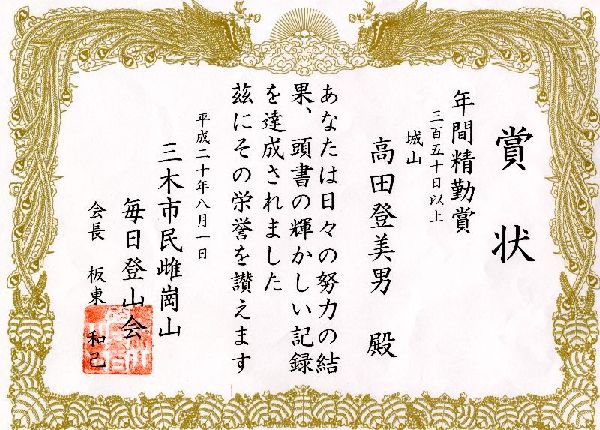 賞状
年間精勤賞
三百五十日以上
城山
高田登美男 殿
あなたは日々の努力の結
果、頭書の輝かしい記録
を達成されました
茲にその栄誉を讃えます
平成二十年八月一日
三木市民雌崗山
毎日登山会
会長 板東 和己